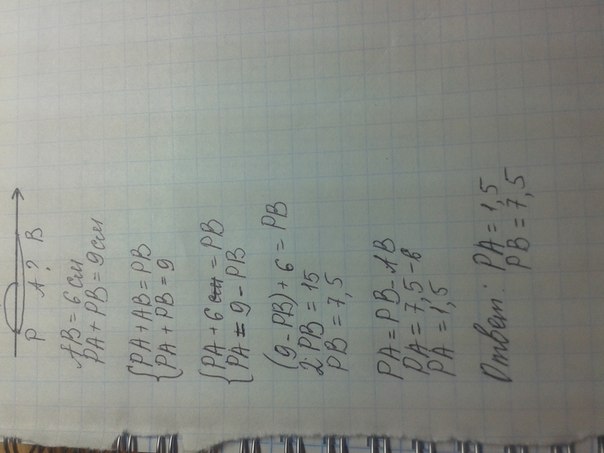 P A ? B
AB = 6 см
PA + PB = 9 см
{PA + AB = PB
{PA + PB = 9
{PA + 6 см = PB
{PA = 9 - PB
(9 - PB) + 6 = PB
2·PB = 15
PB = 7,5
PA = PB - AB
PA = 7,5 - 6
PA = 1,5
Ответ: PA = 1,5
PB = 7,5